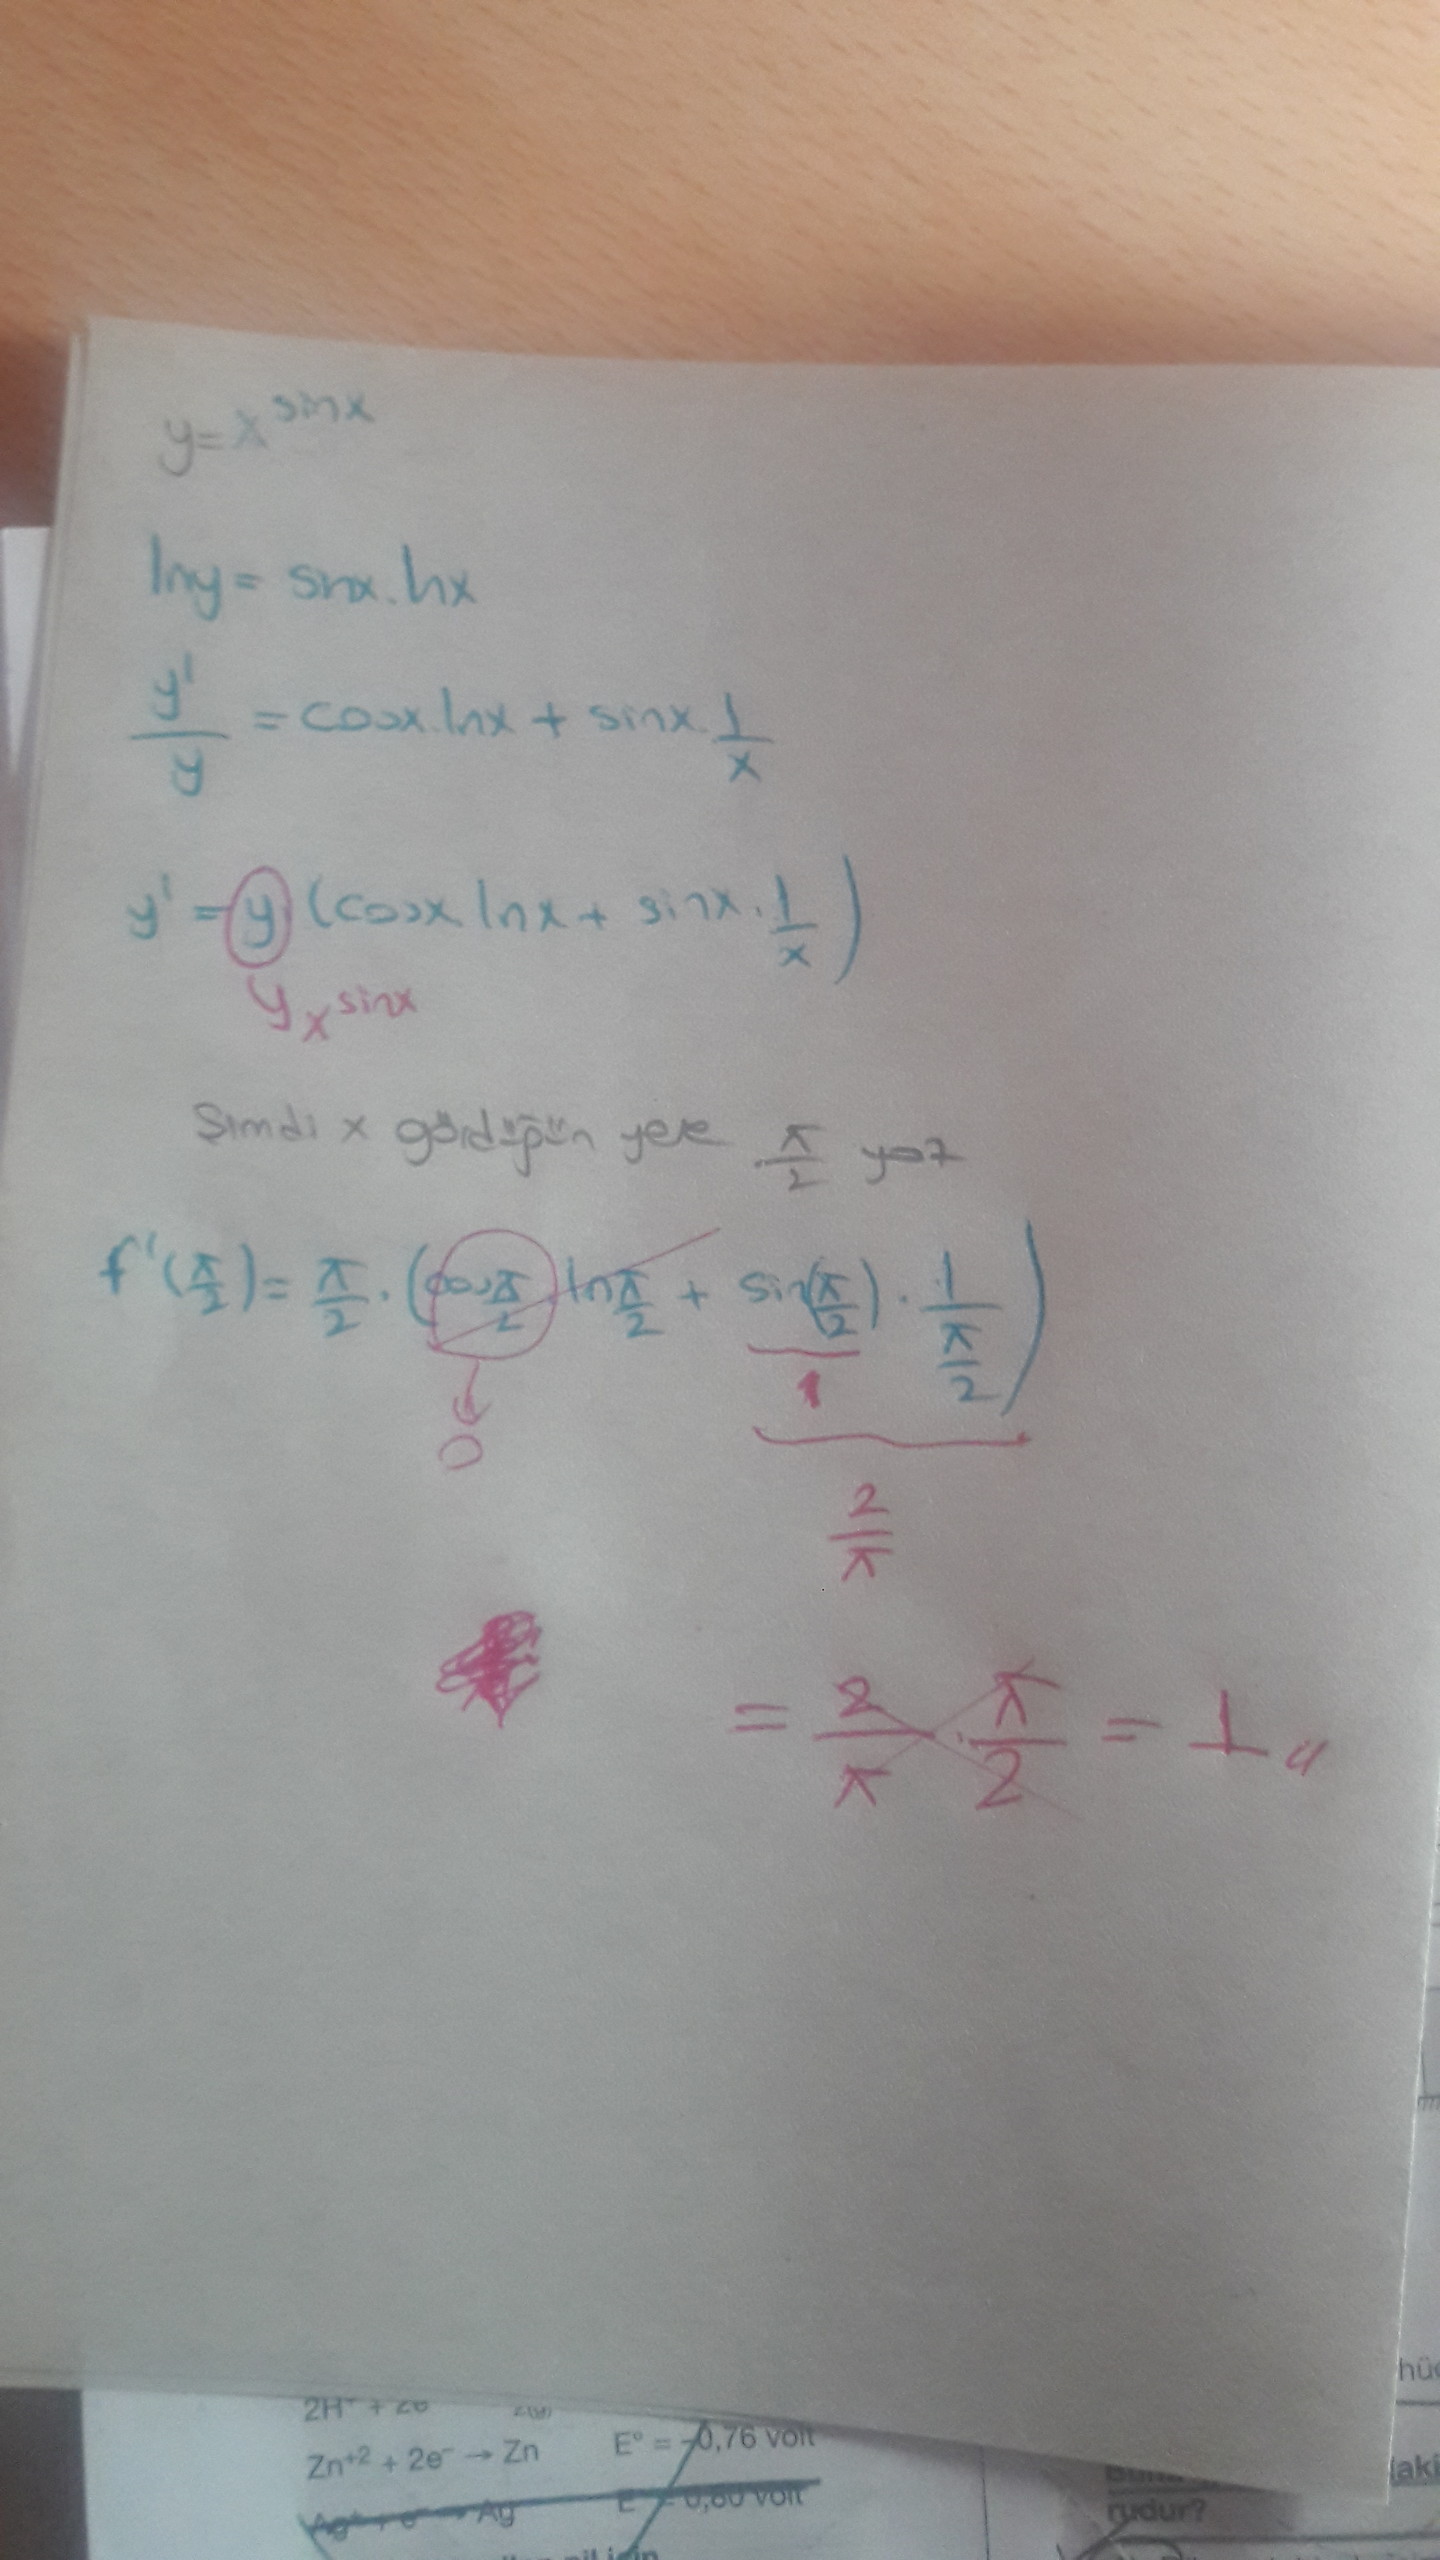 y = x^sinx
lny = sinx.lnx
y'/y = cosx.lnx + sinx.1/x
y' = y (cosx lnx + sinx.1/x)
y x^sinx
Simdi x gördüğün yere π/2 yaz
f'(π/2) = π/2 . (cosπ/2 lnπ/2 + sin(π/2) . 1/π/2)
0
1
2/π
= 2/π . π/2 = 1
2H⁺ + 2e
Zn⁺² + 2e⁻ → Zn E° = -0,76 volt
Ag⁺ + e⁻ → Ag E = 0,80 volt
pil için
rudur?